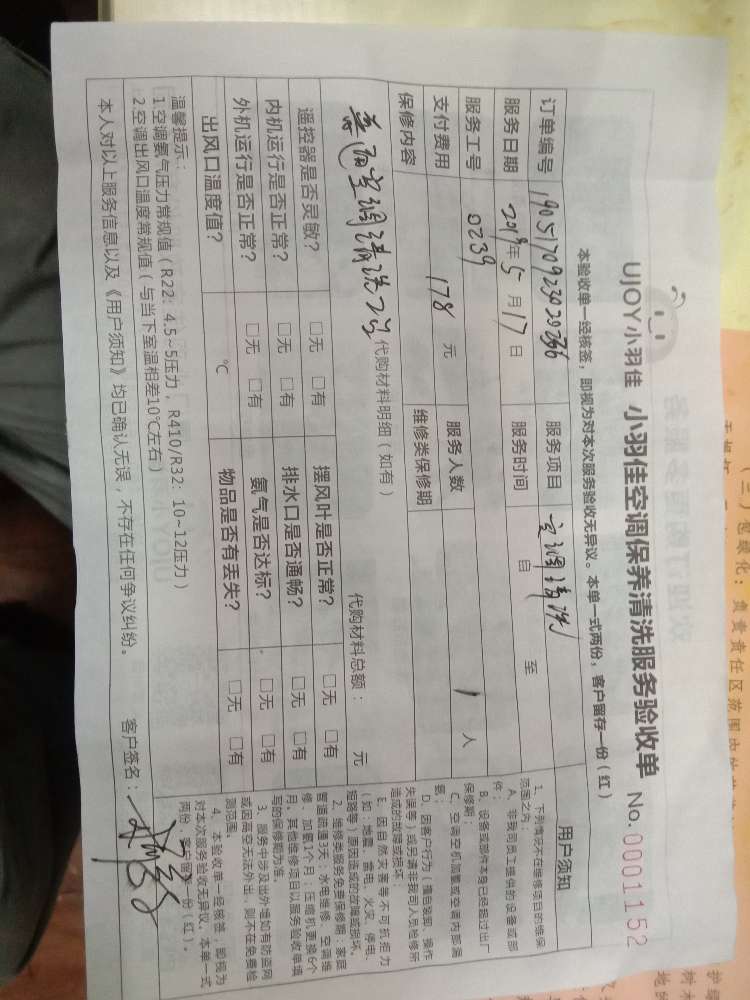 UJOY小羽佳 小羽佳空调保养清洗服务验收单 No.0001152
本验收单一经核签，即视为对本次服务验收无异议。本单一式两份，客户留存一份（红）
订单编号 1905170923020236 服务项目 空调清洗
服务日期 2019年5月17日 服务时间 自 至
服务工号 0239
支付费用 178 元 服务人数 1 人
保修内容 维修类保修期
普通空调清洗2台
代购材料明细（如有） 代购材料总额： 元
遥控器是否灵敏？ □无 □有 摆风叶是否正常？ □无 □有
内机运行是否正常？ □无 □有 排水口是否通畅？ □无 □有
外机运行是否正常？ □无 □有 氨气是否达标？ □无 □有
出风口温度值？ ℃ 物品是否有丢失？ □无 □有
温馨提示：
1.空调氨气压力常规值（R22：4.5~5压力，R410/R32：10~12压力）
2.空调出风口温度常规值（与当下室温相差10℃左右）
本人对以上服务信息以及《用户须知》均已确认无误，不存在任何争议纠纷。 客户签名：
用户须知
1、下列情况不在维修项目的维保
范围之内：
A、非我司员工提供的设备或部
件；
B、设备或部件本身已经超过出厂
保修期；
C、空调空机加氨或空调内部漏
氨；
D、因客户行为（擅自装卸、操作
失误等）或另请非我司人员检修所
造成的故障或损坏；
E、因自然灾害等不可抗拒力
（如：地震、雷电、火灾、停电、
短路等）原因造成的故障或损坏。
2、维修类服务免费保修期：家庭
管道疏通3天，水电维修、空调维
修、加氨1个月；压缩机更换6个
月，其他维修项目以服务验收单填
写的保修期为准。
3、服务中涉及出外墙如有防盗网
或因高空无法外出，则不在免费检
测范围。
4、本验收单一经核签，即视为
对本次服务验收无异议。本单一式
两份，客户留存一份（红）。
（三）思绿化：负责责任区范围内的